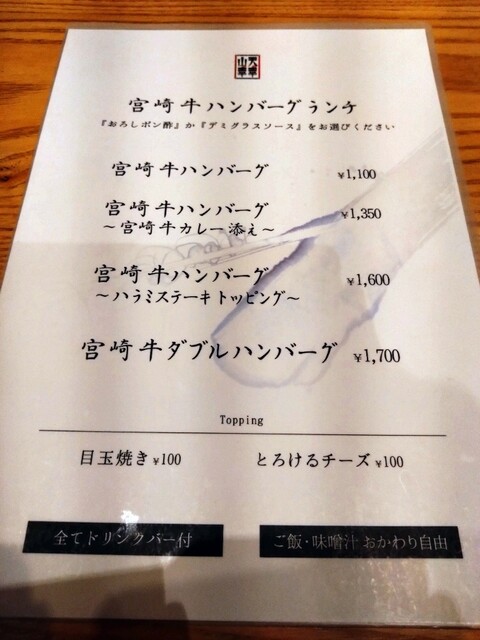 宮崎牛ハンバーグランチ
『おろしポン酢』か『デミグラスソース』をお選びください
宮崎牛ハンバーグ ¥1,100
宮崎牛ハンバーグ ¥1,350
～宮崎牛カレー添え～
宮崎牛ハンバーグ ¥1,600
～ハラミステーキトッピング～
宮崎牛ダブルハンバーグ ¥1,700
Topping
目玉焼き¥100 とろけるチーズ¥100
全てドリンクバー付 ご飯・味噌汁 おかわり自由